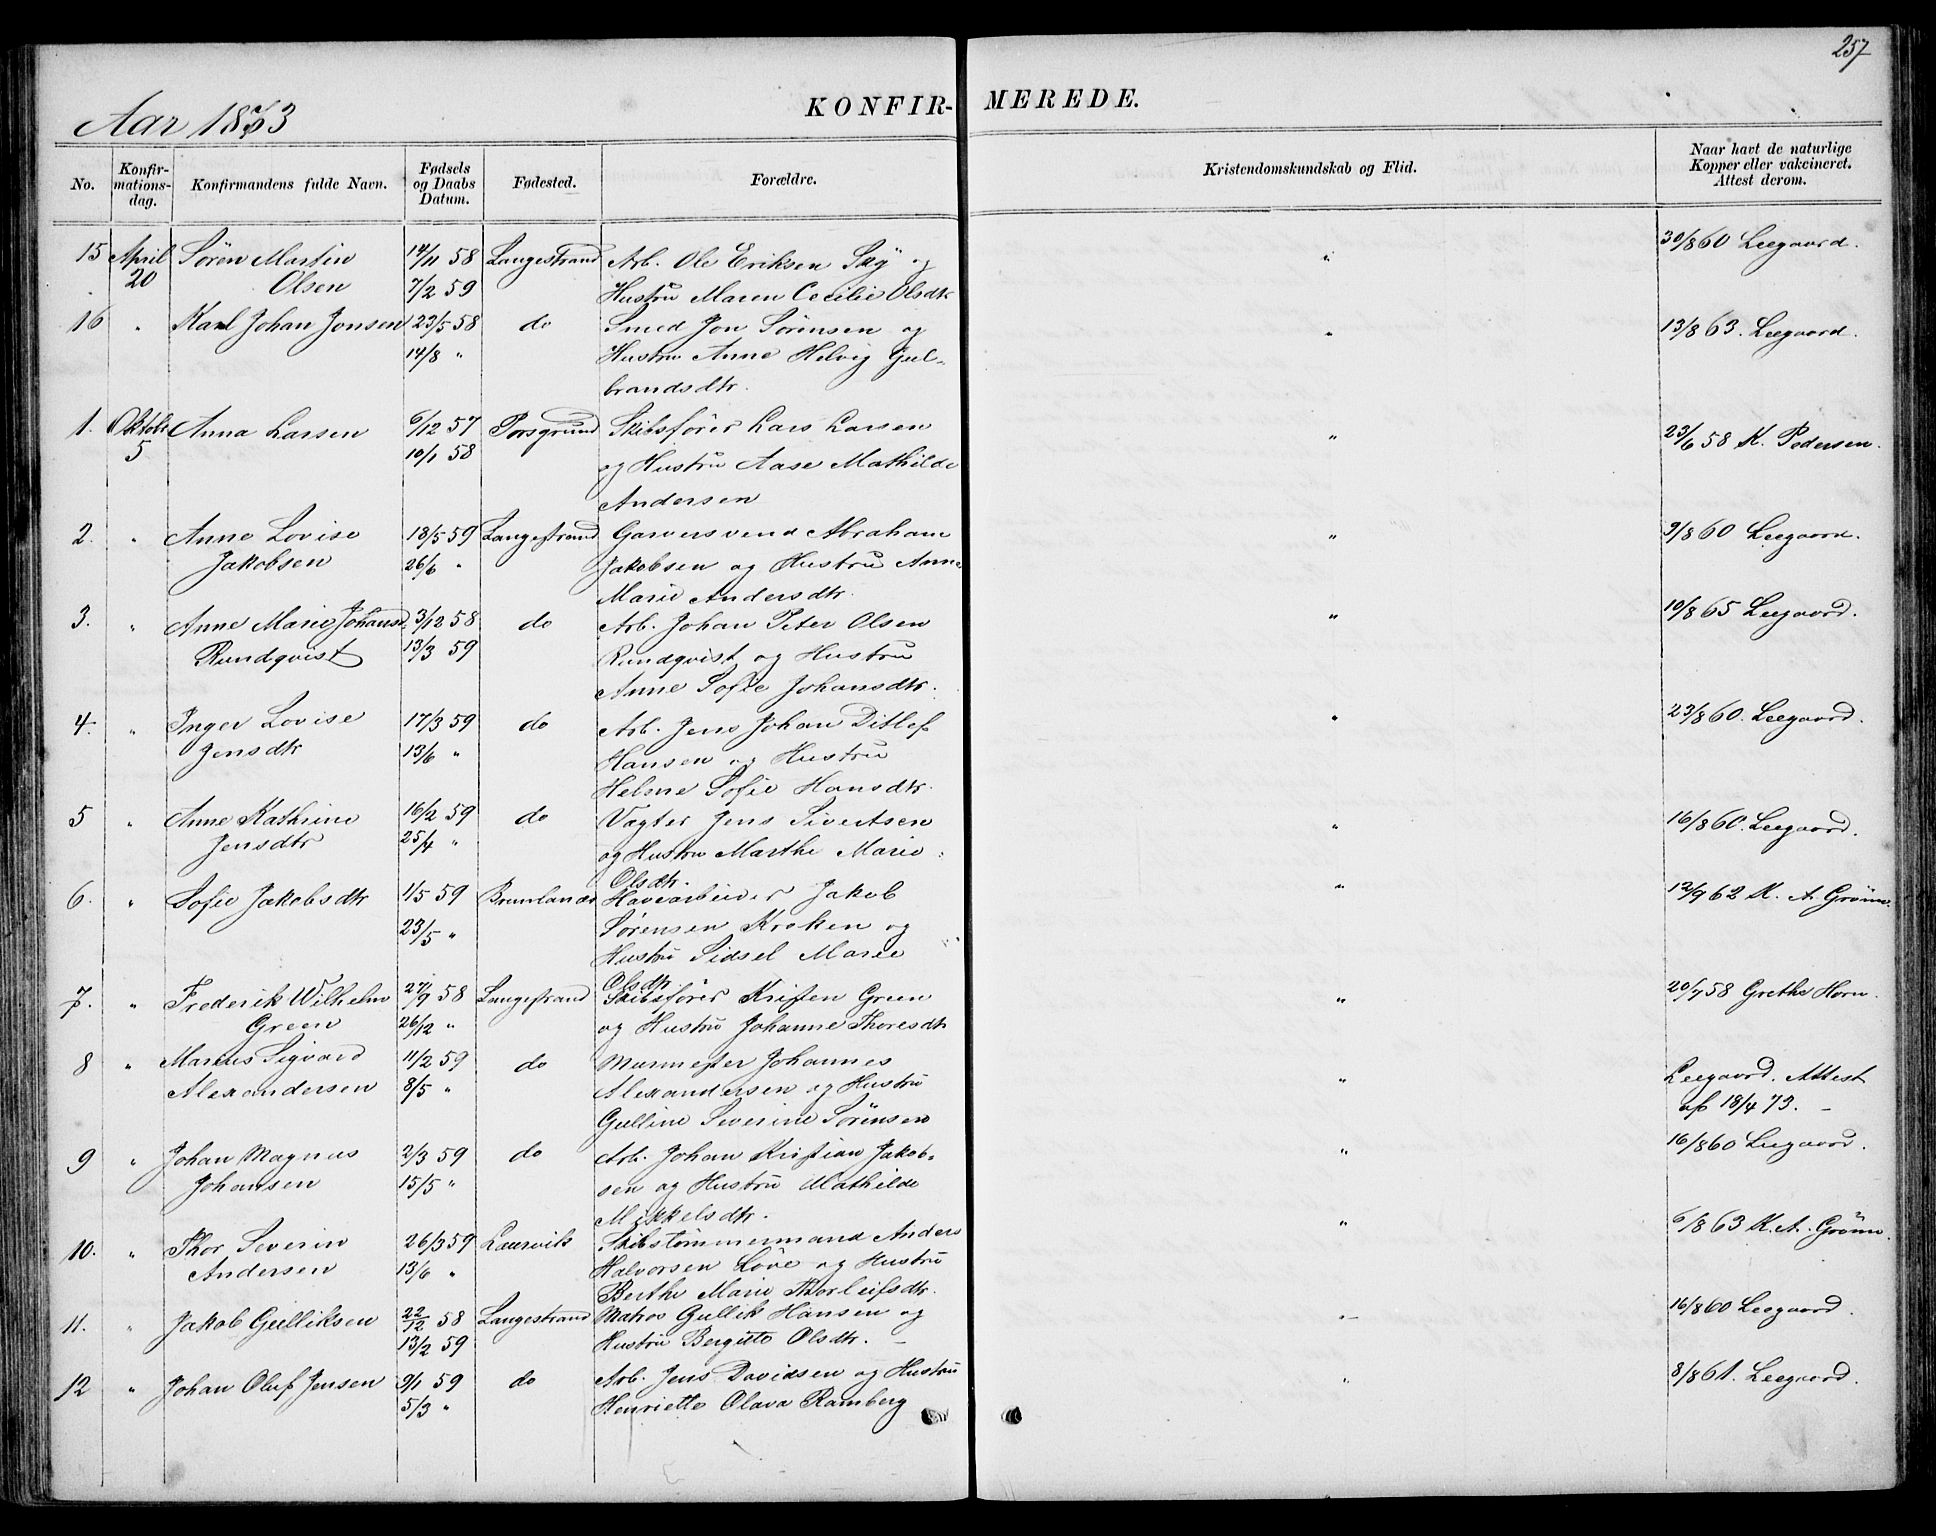 257
Aar 1873
KONFIR- MEREDE.
No. Konfir-mations-dag. Konfirmandens fulde Navn. Fødsels og Daabs Datum. Fødested. Forældre. Kristendomskundskab og Flid. Naar havt de naturlige Kopper eller vakcineret. Attest derom.
15 April Søren Martin 14/11 58 Langestrand Arb. Ole Eriksen Sky og " 30/8 60 Leegaard.
20 Olsen 7/2 59 Hustru Maren Cecilie Olsdtr
16 " Karl Johan Jonsen 23/5 58 do Smed Jon Sørensen og " 13/8 63. Leegaard.
14/8 " Hustru Anne Helvig Gul-
brandsdtr.
1. Oktobr Anna Larsen 6/12 57 Porsgrund Skibsfører Lars Larsen " 23/6 58 K. Pedersen.
5 10/1 58 og Hustru Aase Mathilde
Andersen
2. " Anne Lovise 18/5 59 Langestrand Garversvend Abraham " 9/8 60 Leegaard.
Jakobsen 26/6 " Jakobsen og Hustru Anne
Marie Andersdtr.
3. " Anne Marie Johansd. 3/12 58 do Arb. Johan Peter Olsen " 10/8 65 Leegaard.
Rundqvist 13/3 59 Rundqvist og Hustru
Anne Sofie Johansdtr.
4. " Inger Lovise 17/3 59 do Arb. Jens Johan Ditlef " 23/8 60. Leegaard.
Jensdtr 13/6 " Hansen og Hustru
Helene Sofie Hansdtr.
5 " Anne Kathrine 16/2 59 do Vægter Jens Sivertsen " 16/8 60. Leegaard.
Jensdtr 25/4 " og Hustru Marthe Marie
Olsdtr.
6. " Sofie Jakobsdtr 1/5 59 Brunlanæs Havearbeider Jakob " 12/9 62 K. A. Grønn.
23/5 " Sørensen Kroken og
Hustru Sidsel Marie
Olsdtr
7. " Frederik Wilhelm 27/9 58 Langestrand Skibsfører Kristen Green " 20/7 58 Grethe Horn.
Green 26/12 " og Hustru Johanne Thoresdtr
8 " Marcus Sigvard 11/2 59 do Murmester Johannes " Leegaard. Attest
Alexandersen 8/5 " Alexandersen og Hustru af 18/4 73. –
Gulline Severine Sørensen
9 " Johan Magnus 2/3 59 do Arb. Johan Kristian Jakob- " 16/8 60 Leegaard.
Johansen 15/5 " sen og Hustru Mathilde
Mikkelsdtr.
10. " Thor Severin 26/3 59 Laurvik Skibstømmermand Anders " 6/8 63 K. A. Grønn.
Andersen 13/6 " Halvorsen Løve og Hustru
Berthe Marie Thorleifsdtr.
11. " Jakob Gulliksen 22/12 58 Langestrand Matros Gullik Hansen og " 16/8 60 Leegaard.
13/2 59 Hustru Bergitte Olsdtr. –
12 " Johan Oluf Jensen 9/1 59 do Arb. Jens Davidsen og Hustru " 8/8 61. Leegaard.
5/3 " Henriette Olava Ramberg